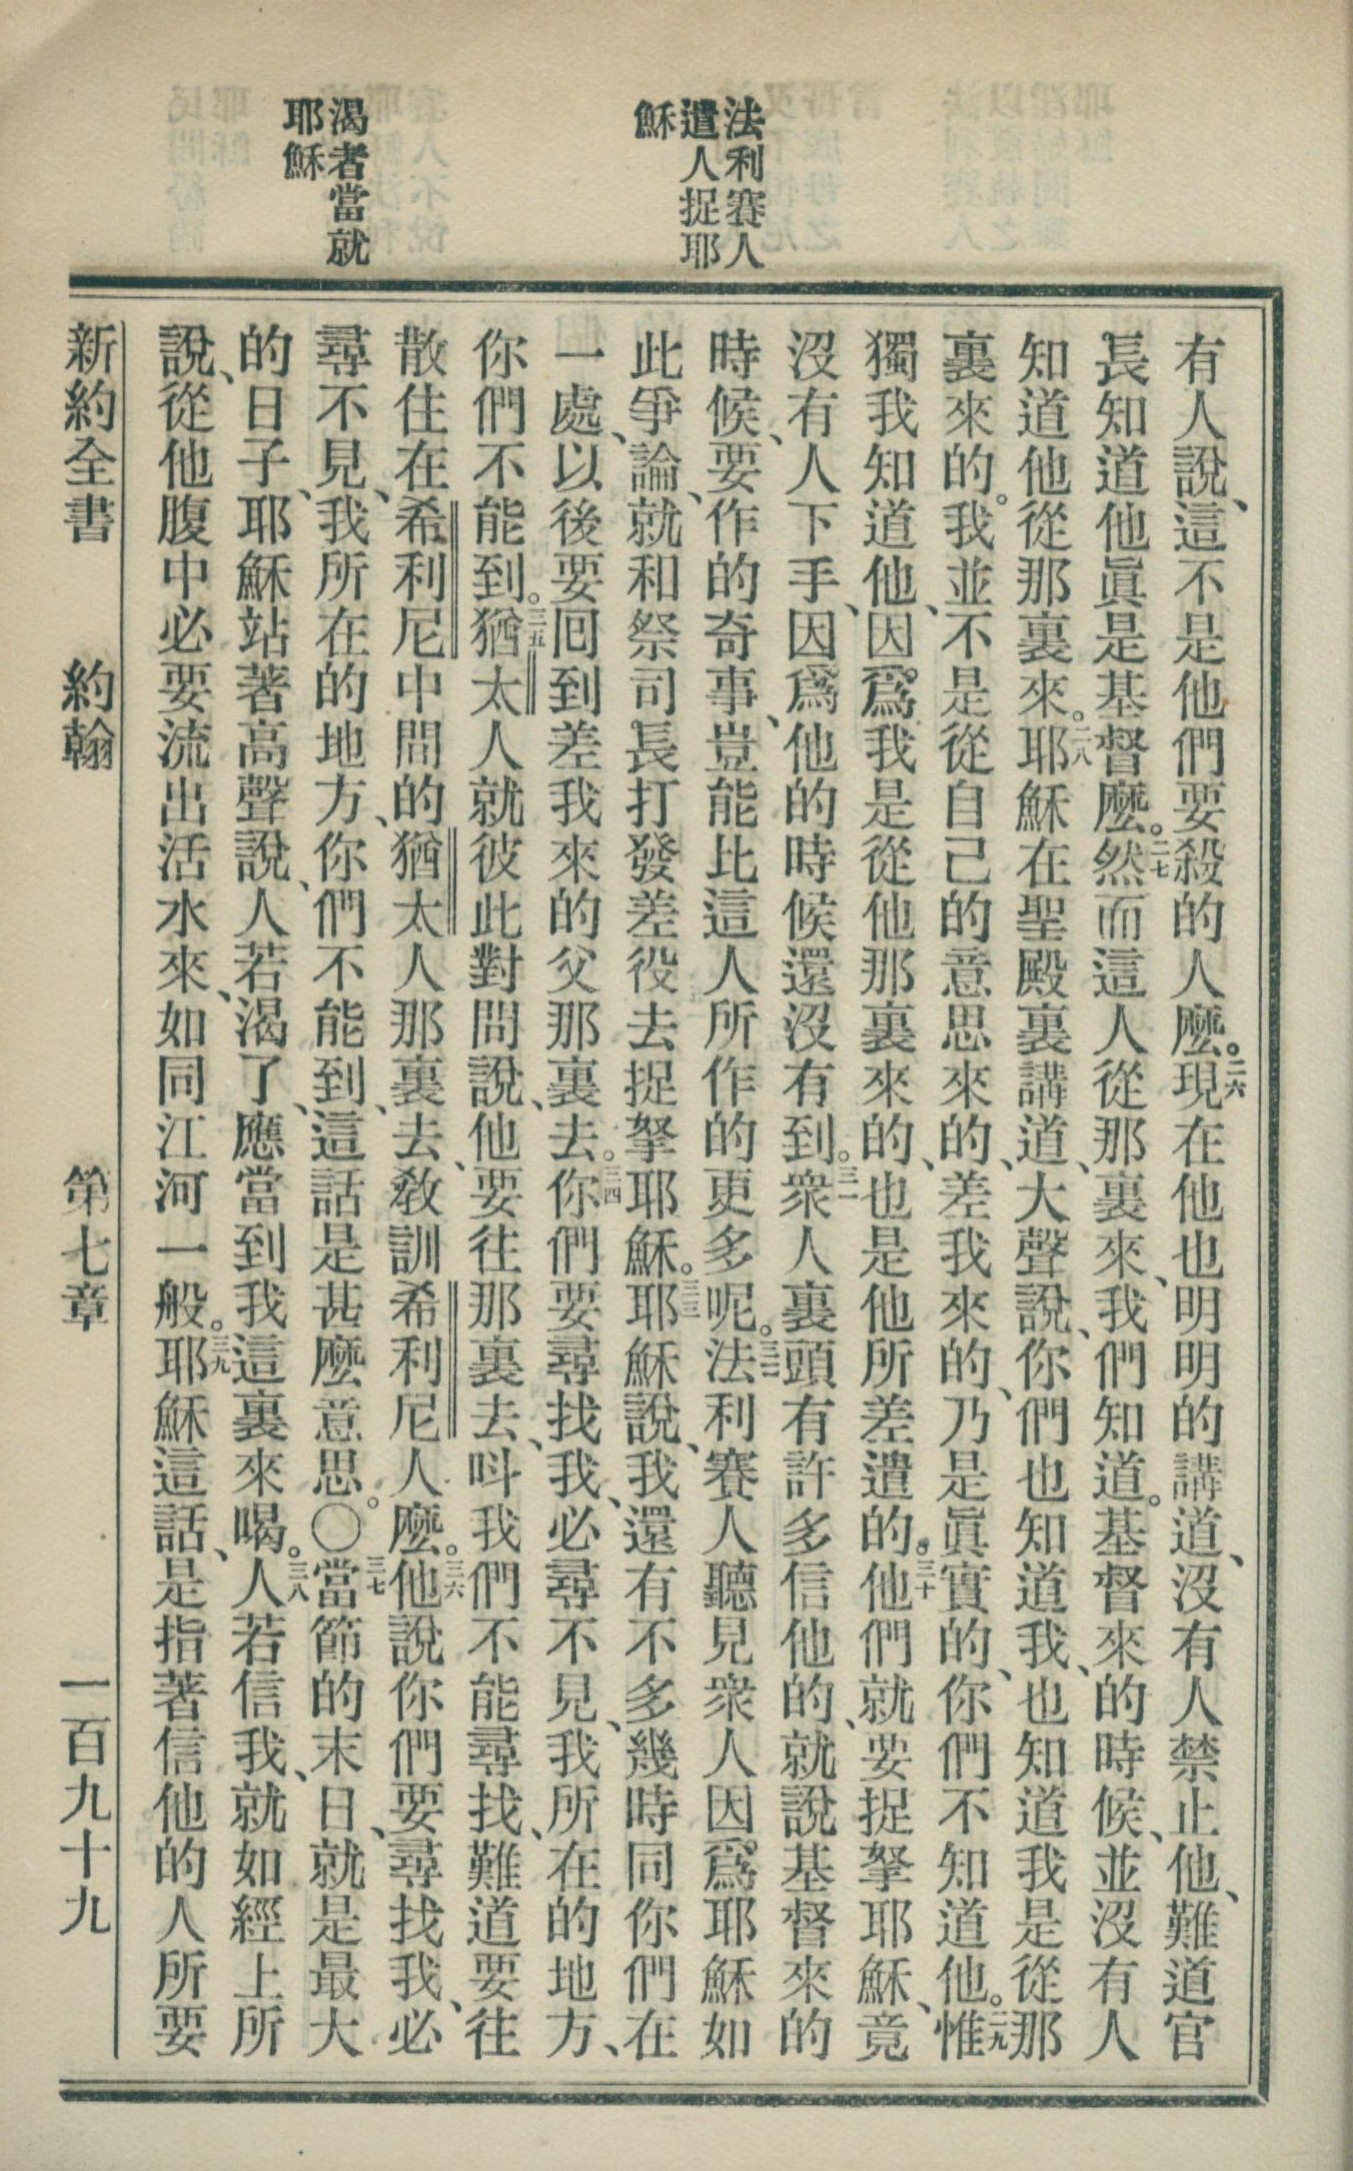 法利賽人
遣人捉耶
穌
渴者當就
耶穌
有人說、這不是他們要殺的人麼。二六現在他也明明的講道、沒有人禁止他、難道官
長知道他眞是基督麼。二七然而這人從那裏來、我們知道。基督來的時候、並沒有人
知道他從那裏來。二八耶穌在聖殿裏講道、大聲說、你們也知道我、也知道我是從那
裏來的。我並不是從自己的意思來的、差我來的、乃是眞實的、你們不知道他。二九惟
獨我知道他、因爲我是從他那裏來的、也是他所差遣的。三十他們就要捉拏耶穌、竟
沒有人下手、因爲他的時候還沒有到。三一衆人裏頭有許多信他的、就說基督來的
時候、要作的奇事、豈能比這人所作的更多呢。三二法利賽人聽見衆人因爲耶穌如
此爭論、就和祭司長打發差役去捉拏耶穌。三三耶穌說、我還有不多幾時同你們在
一處、以後要囘到差我來的父那裏去。三四你們要尋找我、必尋不見、我所在的地方、
你們不能到。三五猶太人就彼此對問說、他要往那裏去、呌我們不能尋找、難道要往
散住在希利尼中間的猶太人那裏去、敎訓希利尼人麼。三六他說你們要尋找我、必
尋不見、我所在的地方、你們不能到、這話是甚麼意思。〇三七當節的末日、就是最大
的日子、耶穌站著高聲說、人若渴了、應當到我這裏來喝。三八人若信我、就如經上所
說、從他腹中必要流出活水來、如同江河一般。三九耶穌這話、是指著信他的人所要
新約全書 約翰 第七章 一百九十九